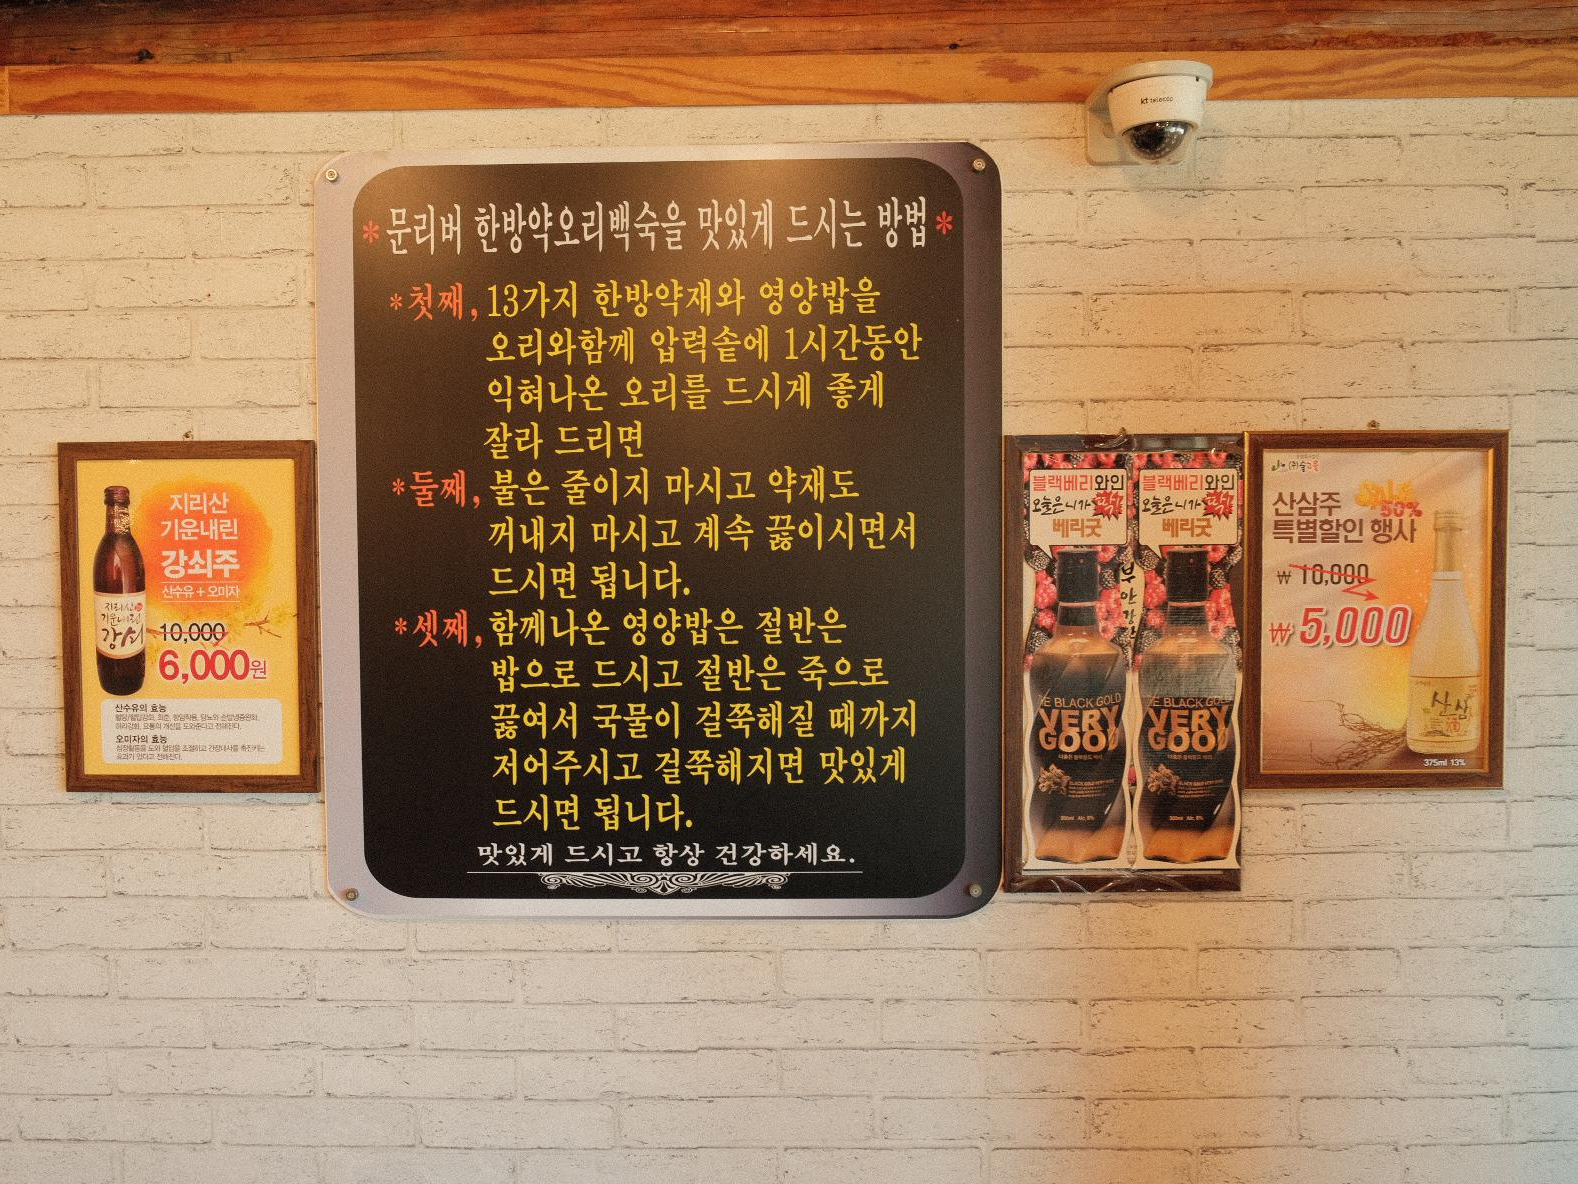 kt telecop
*문리버 한방약오리백숙을 맛있게 드시는 방법*
*첫째, 13가지 한방약재와 영양밥을
오리와함께 압력솥에 1시간동안
익혀나온 오리를 드시게 좋게
잘라 드리면
*둘째, 불은 줄이지 마시고 약재도
꺼내지 마시고 계속 끓이시면서
드시면 됩니다.
*셋째, 함께나온 영양밥은 절반은
밥으로 드시고 절반은 죽으로
끓여서 국물이 걸쭉해질 때까지
저어주시고 걸쭉해지면 맛있게
드시면 됩니다.
맛있게 드시고 항상 건강하세요.
지리산
기운내린
강쇠주
산수유 + 오미자
10,000
6,000원
지리산
기운내린
강쇠
산수유의 효능
오미자의 효능
블랙베리와인
오늘은 니가
베리굿
블랙베리와인
오늘은 니가
베리굿
부안강산
BLACK GOLD
VERY
GOOD
BLACK GOLD
VERY
GOOD
(주)술그룹
산삼주
특별할인 행사
SALE
50%
₩ 10,000
₩ 5,000
산삼
375ml 13%